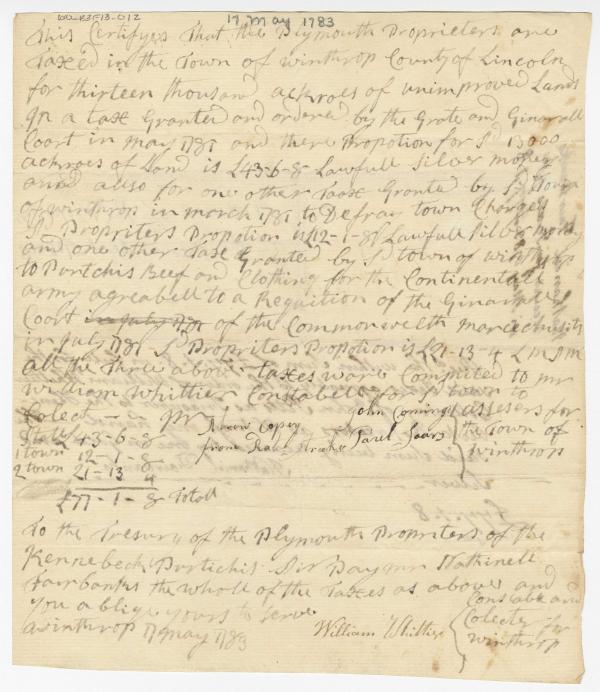 17 May 1783
This Certifyes That the Plymouth Proprieters are
Taxed in the Town of Winthrop County of Lincoln
for thirteen thousand ackroes of unimproved Land
In a tax Granted and ordered by the Grate and Ginarall
Coart in may 1781 and there Propotion for Sd 13000
ackroes of Land is £43-6-8 Lawfull Silver money
and also for one other Taax Granted by Sd Town
of winthrop in march 1781 to Defray town Charges
Sd Propriters Propotion is £12-1-8 Lawfull Silver money
and one other Tax Granted by Sd town of winthrop
to Purtchis Beef and Clothing for the Continentall
army agreabell to a Requition of the Ginarall
Coart in July 1781 of the Commonwelth
in July 1781 Sd Propriters Propotion is £21-13-4 L M
all the three above taxes ware Commited to mr
William Whittier Constabell for Sd town to
Colect
State 43-6-8
1 town 12-1-8
2 town 21-13 4
£77-1-8 Totall
A Copey
from
John Comings
Paul Sears
assesers for
the Town of
Winthrop
To the Tresury of the Plymouth Propriters of the
Kennebeck Purtchis Sir Pay mr Nathinell
Fairbanks the whole of the Taxes as above and
you ablige yours to Serve
Winthrop 17 may 1783
William Whittier
Constabl and
Colecter for
Winthrop